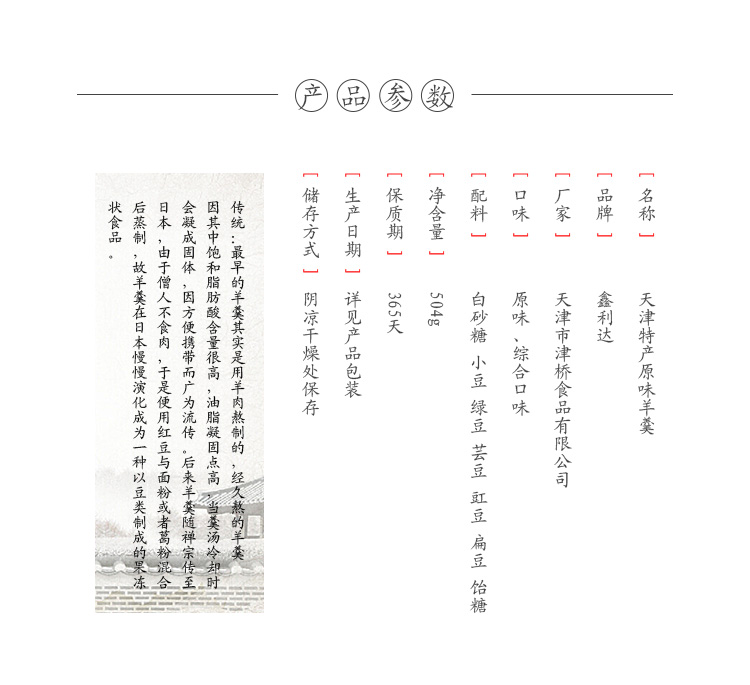 产品参数
【名称】 天津特产原味羊羹
【品牌】 鑫利达
【厂家】 天津市津桥食品有限公司
【口味】 原味、综合口味
【配料】 白砂糖 小豆 绿豆 芸豆 豇豆 扁豆 饴糖
【净含量】 504g
【保质期】 365天
【生产日期】 详见产品包装
【储存方式】 阴凉干燥处保存
传统：最早的羊羹其实是用羊肉熬制的，经久熬的羊羹
因其中饱和脂肪酸含量很高，油脂凝固点高，当羹汤冷却时
会凝成固体，因方便携带而广为流传。后来羊羹随禅宗传至
日本，由于僧人不食肉，于是便用红豆与面粉或者葛粉混合
后蒸制，故羊羹在日本慢慢演化成为一种以豆类制成的果冻
状食品。